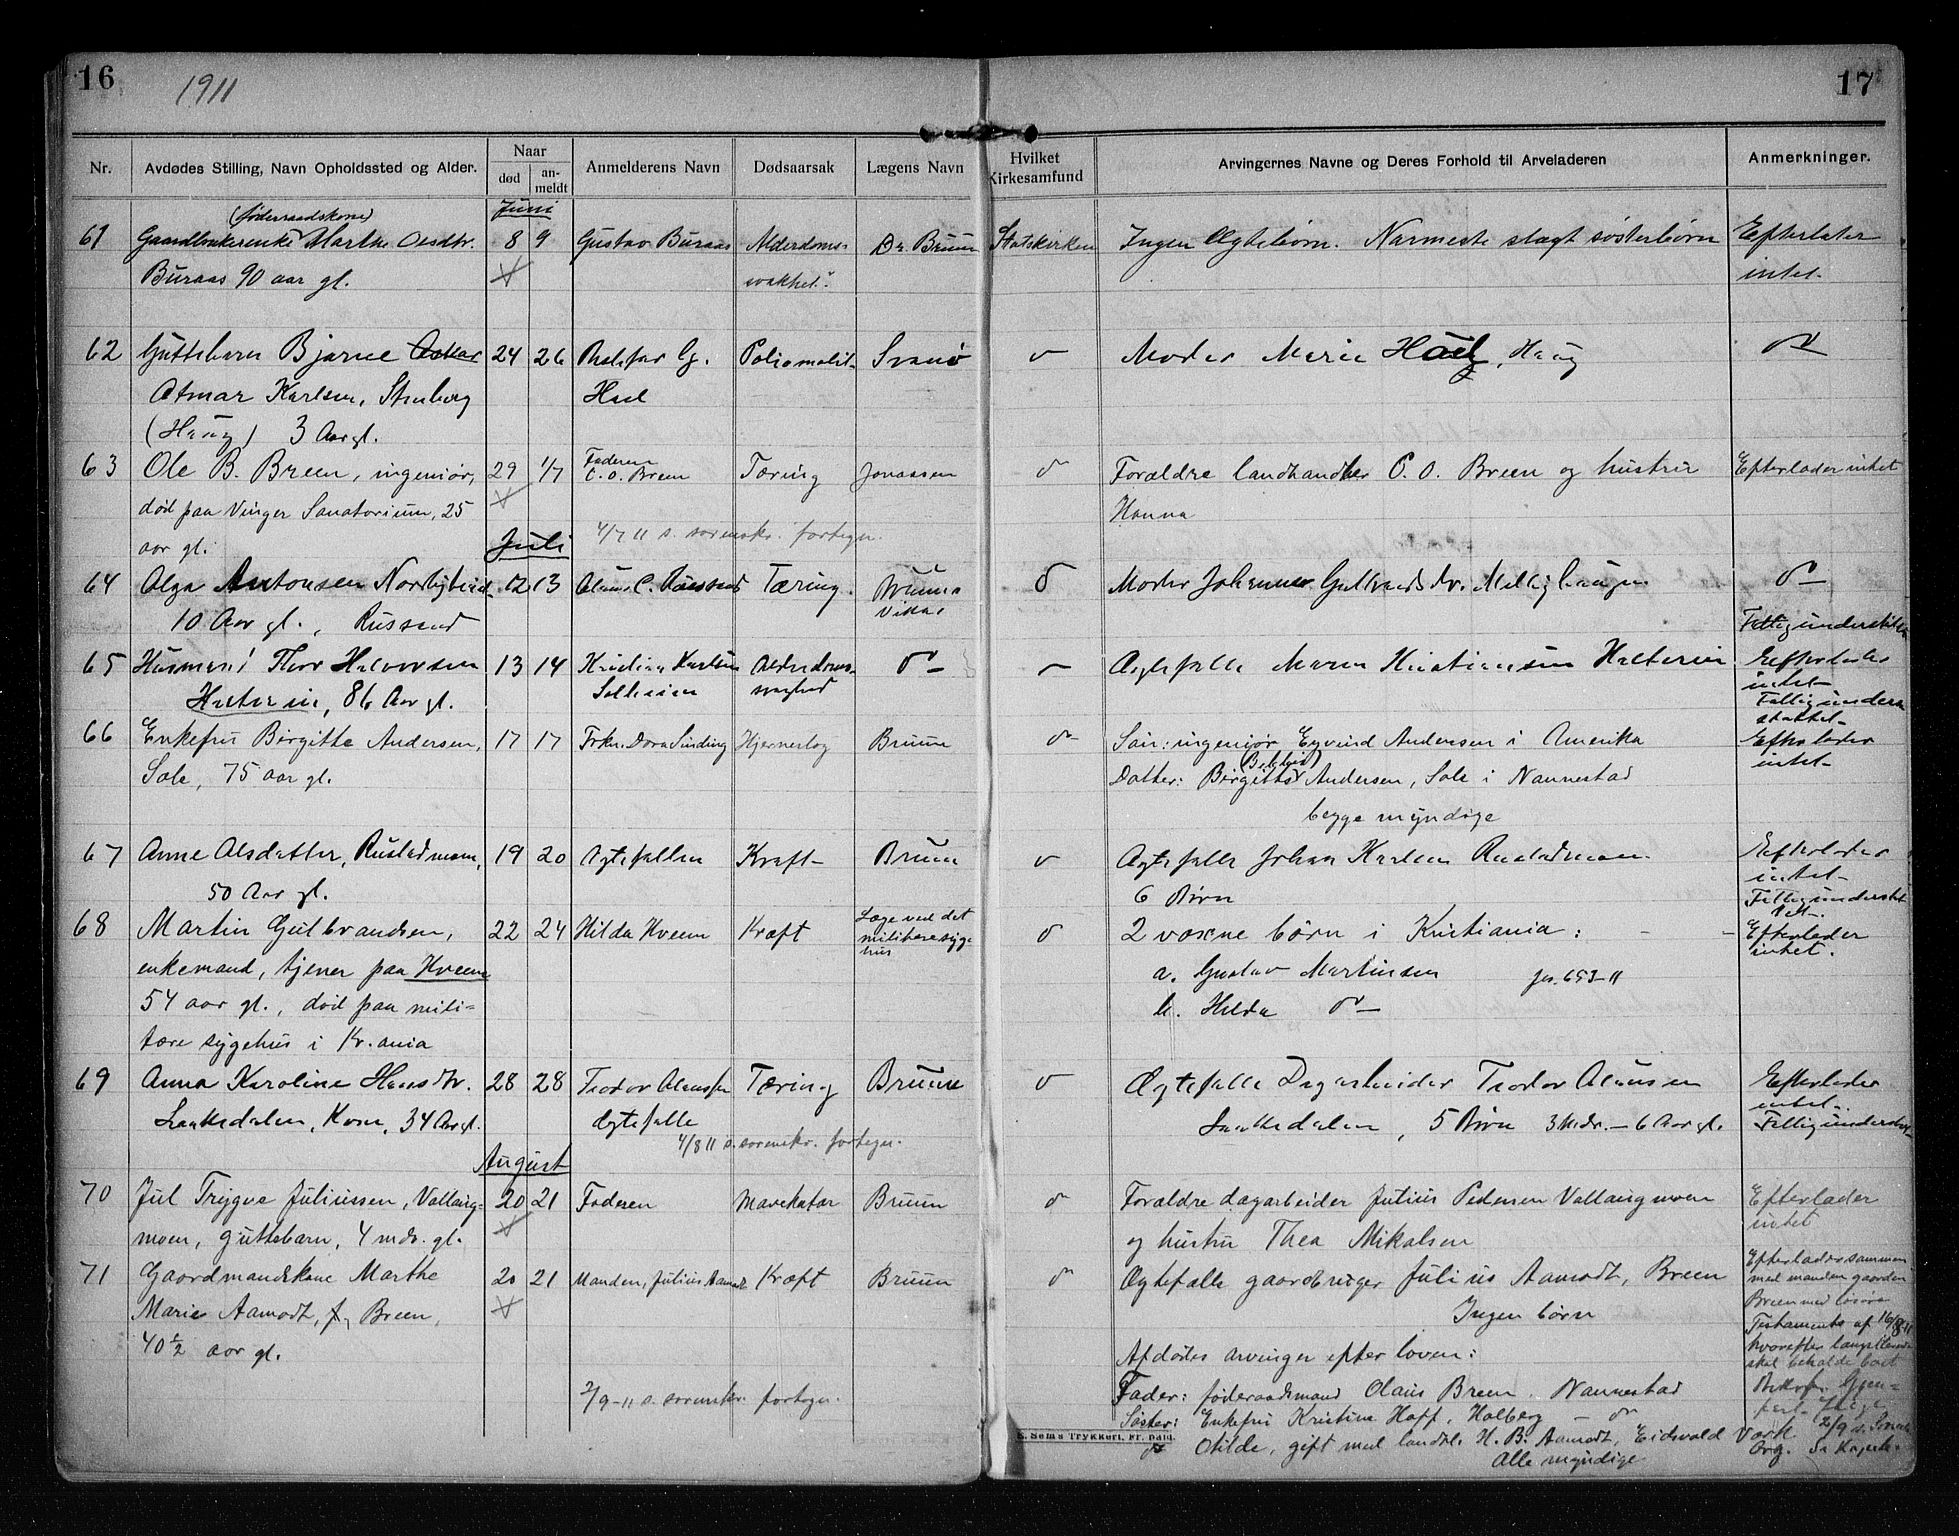 16
1911
17
Nr.
Avdødes Stilling, Navn Opholdssted og Alder.
Naar
død
an-
meldt
Anmelderens Navn
Dødsaarsak
Lægens Navn
Hvilket
Kirkesamfund
Arvingernes Navne og Deres Forhold til Arveladeren
Anmerkninger.
Juni
(føderaadskone)
61 Gaardbrukerenke Marthe Olsdtr. 8 9 Gustav Buraas Alderdoms- Dr. Bruun Statskirken Ingen Ægtebørn. Nærmeste slegt søsterbørn Efterlater
Buraas 90 aar gl. svakhet. intet.
62 Guttebarn Bjarne Oskar 24 26 G. Poliomelit- Svanø Moder Marie Haug
Otmar Karlsen, Stenberg Huel
(Haug) 3 Aar gl.
63 Ole B. Breen, ingeniør, 29 1/7 Faderen Tæring Jonassen Forældre landhandler O. O. Breen og hustru Efterlader intet
O. O. Breen
død paa Vinger Sanatorium, 25 Hanna
aar gl. 4/7 11 s. sorenskr. fortegn.
Juli
64 Olga Antonsen 12 13 Tæring. Bruuns Moder Johanne Gulbrandsdr.
vikar
10 Aar gl., Russend
Fattigunderstøttet
65 Husmand Thor Halvorsen 13 14 Kristian Karlsen Alderdoms- Ægtefælle Maren Kristiansen Efterlader
svaghed intet
86 Aar gl. Fattigunder-
støttet
66 Enkefru Birgitte Andersen, 17 17 Frkn. Dora Sinding Hjerneslag Bruun Søn: ingeniør Eyvind Andersen i Amerika Efterlader
Sole, 75 aar gl. Datter: Birgitte (Bolghild) Andersen, Sole i Nannestad intet
begge myndige
67 Anne Olsdatter, Rustadmoen, 19 20 Ægtefællen Kræft Bruun Ægtefælle Johan Karlsen Rustadmoen. Efterlader
intet
50 Aar gl. 6 Børn Fattigunderstøt-
tet.
68 Martin Gulbrandsen, 22 24 Hilda Kveem Kræft Læge ved det 2 voxne børn i Kristiania: Efterlader
militæresyge- intet.
hus
enkemand, tjener paa Kveem a. Gustav Martinsen Jor. 653-11
54 aar gl., død paa mili- b. Hilda do
tære sygehus i Kr.ania
69 Anna Karoline Hansdtr. 28 28 Teodor Olaussen Tæring Bruun Ægtefælle Dagarbeider Teodor Olausen Efterlader
intet.
Laaksdalen, Kone, 34 Aar gl. Ægtefælle Laaksdalen, 5 Børn 3 Mdr. - 6 Aar gl. Fattigunderst.
4/8 11 s. sorenskr. fortegn.
August
70 Jul Trygve Juliussen, Vallaug- 20 21 Faderen Mavekatar Bruun Forældre dagarbeider Julius Pedersen Vallaugmoen Efterlader
moen, guttebarn, 4 mdr. gl. og hustru Thea Mikalsen intet
71 Gaardmandskone Marthe 20 21 Manden, Julius Aamodt Kræft Bruun Ægtefælle gaardbruger Julius Aamodt, Breen Efterlader sammen
med manden gaarden
Marie Aamodt, f. Breen, Ingen børn Breen med løsøre
Testamente af 16/8 11
40½ aar gl. Afdødes arvinger efter loven: hvorefter længstlevende
skal beholde boet
2/9-11 s. sorenskr. fortegn. Fader: føderaadsmand Olaus Breen. Nannestad
Søster: Enkefru Kristine Hoff, Holberg - do
Otilde, gift med landh. H. B. Aamodt, Eidsvold Værk
Alle myndige
E. Sems Trykkeri, Fr.hald.